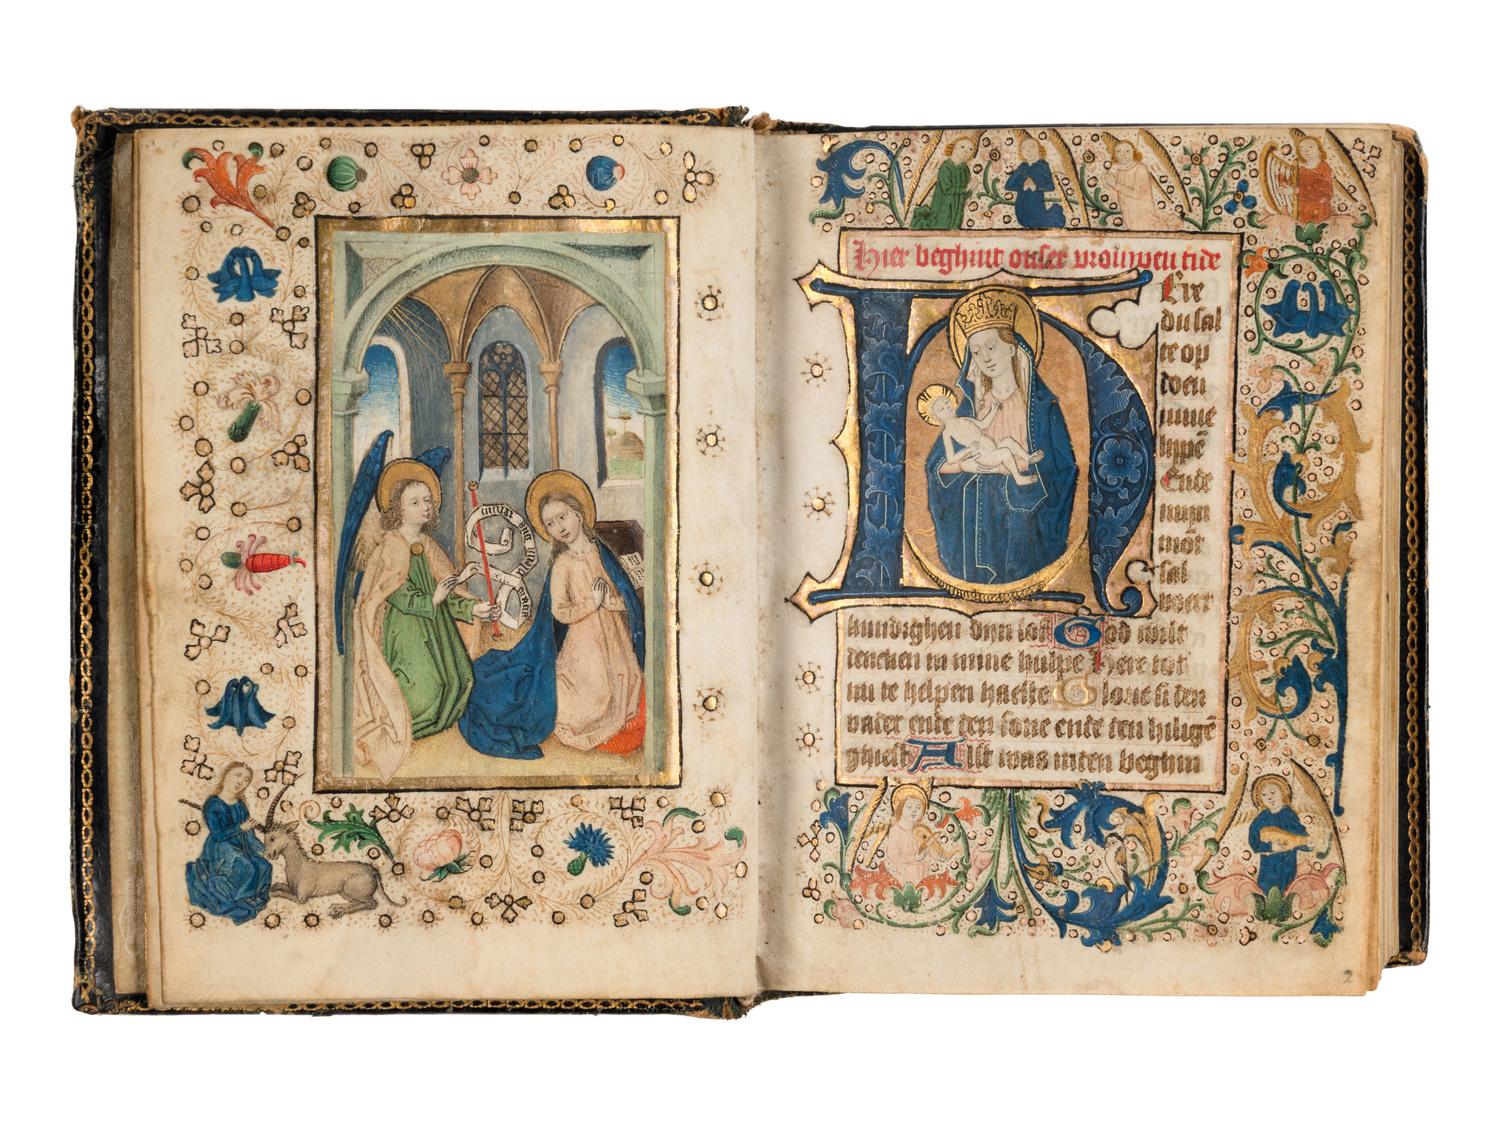 aue gracia plena dominus tecum
Hier beghint onser vrouwen tide
Ere
du sal
te op
doen
mine
lippē
Ende
mijn
mōt
sal
voert
kundighen dijn lof God wilt
dencken in mine hulpe Here tot
mi te helpen haeste Glorie si den
vader ende den sone ende den hilighē
ghiest Alst was inten beghin
2